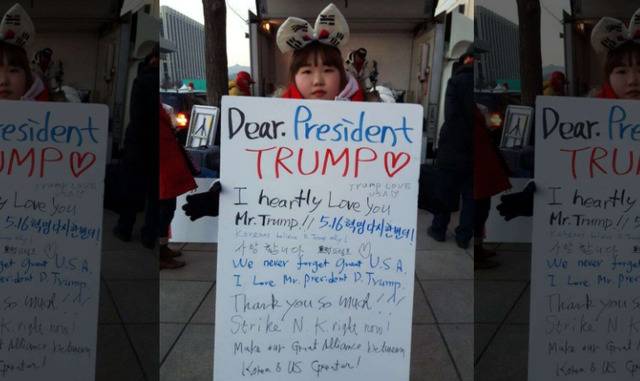 Dear. President
TRUMP♡
TRUMP LOVE
USA
I heartly Love You
Mr. Trump!! 5.16혁명 다시한번더!
사랑합니다 ♡
We never forget Great U.S.A.
I Love Mr. President D. Trump.
Thank you so much!!
Strike N K. right now!
Make our Great Alliance between
Korea & US Greater!